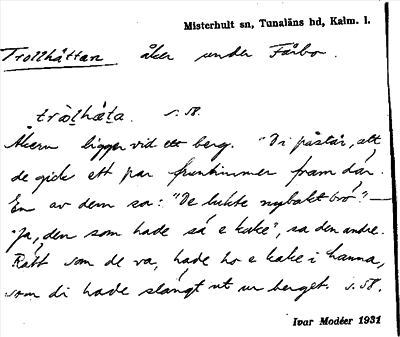 Misterhult sn, Tunaläns hd, Kalm. l.
Trollhättan åker under Fårbo.
tròlhǽta. s. 58.
Åkern ligger vid ett berg. "Di påstår, att
de gick ett par fruntimmer fram där.
En av dem sa: "De lukte nybakt brö" —
"Ja, den som hade så e kake", sa den andre.
Rätt som de va, hade ho e kake i hanna,
som di hade slängt ut ur berget. s. 58.
Ivar Modéer 1931